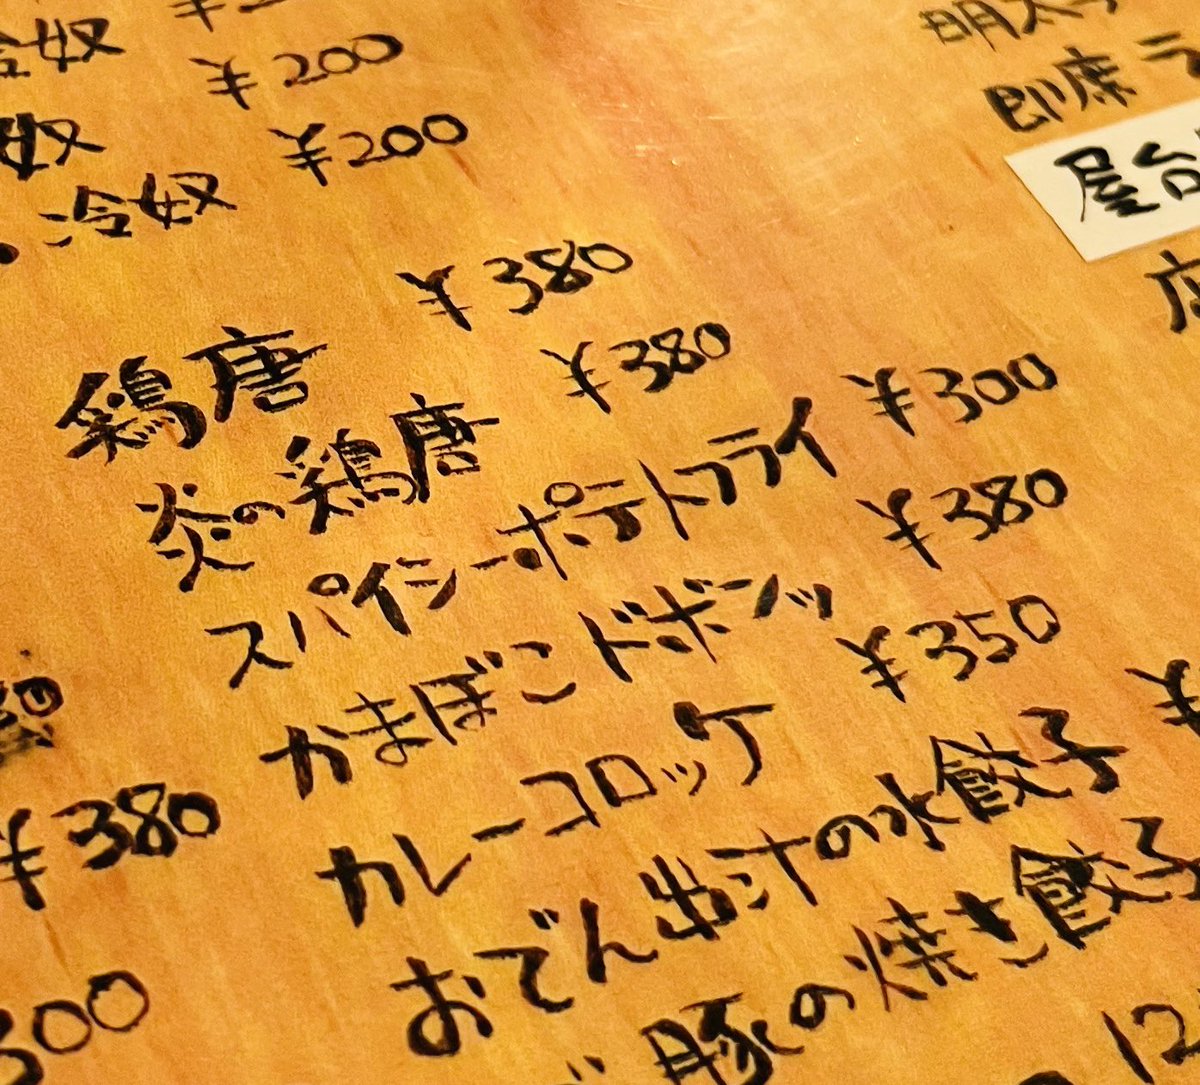 冷奴
¥200
奴 ¥200
冷奴
鶏唐 ¥380
炎の鶏唐 ¥380
スパイシーポテトフライ ¥300
かまぼこドボンッ ¥380
カレーコロッケ ¥350
おでん出汁の水餃子 ¥
豚の焼き餃子
¥380
300
12
明太子
即席ラ
屋台